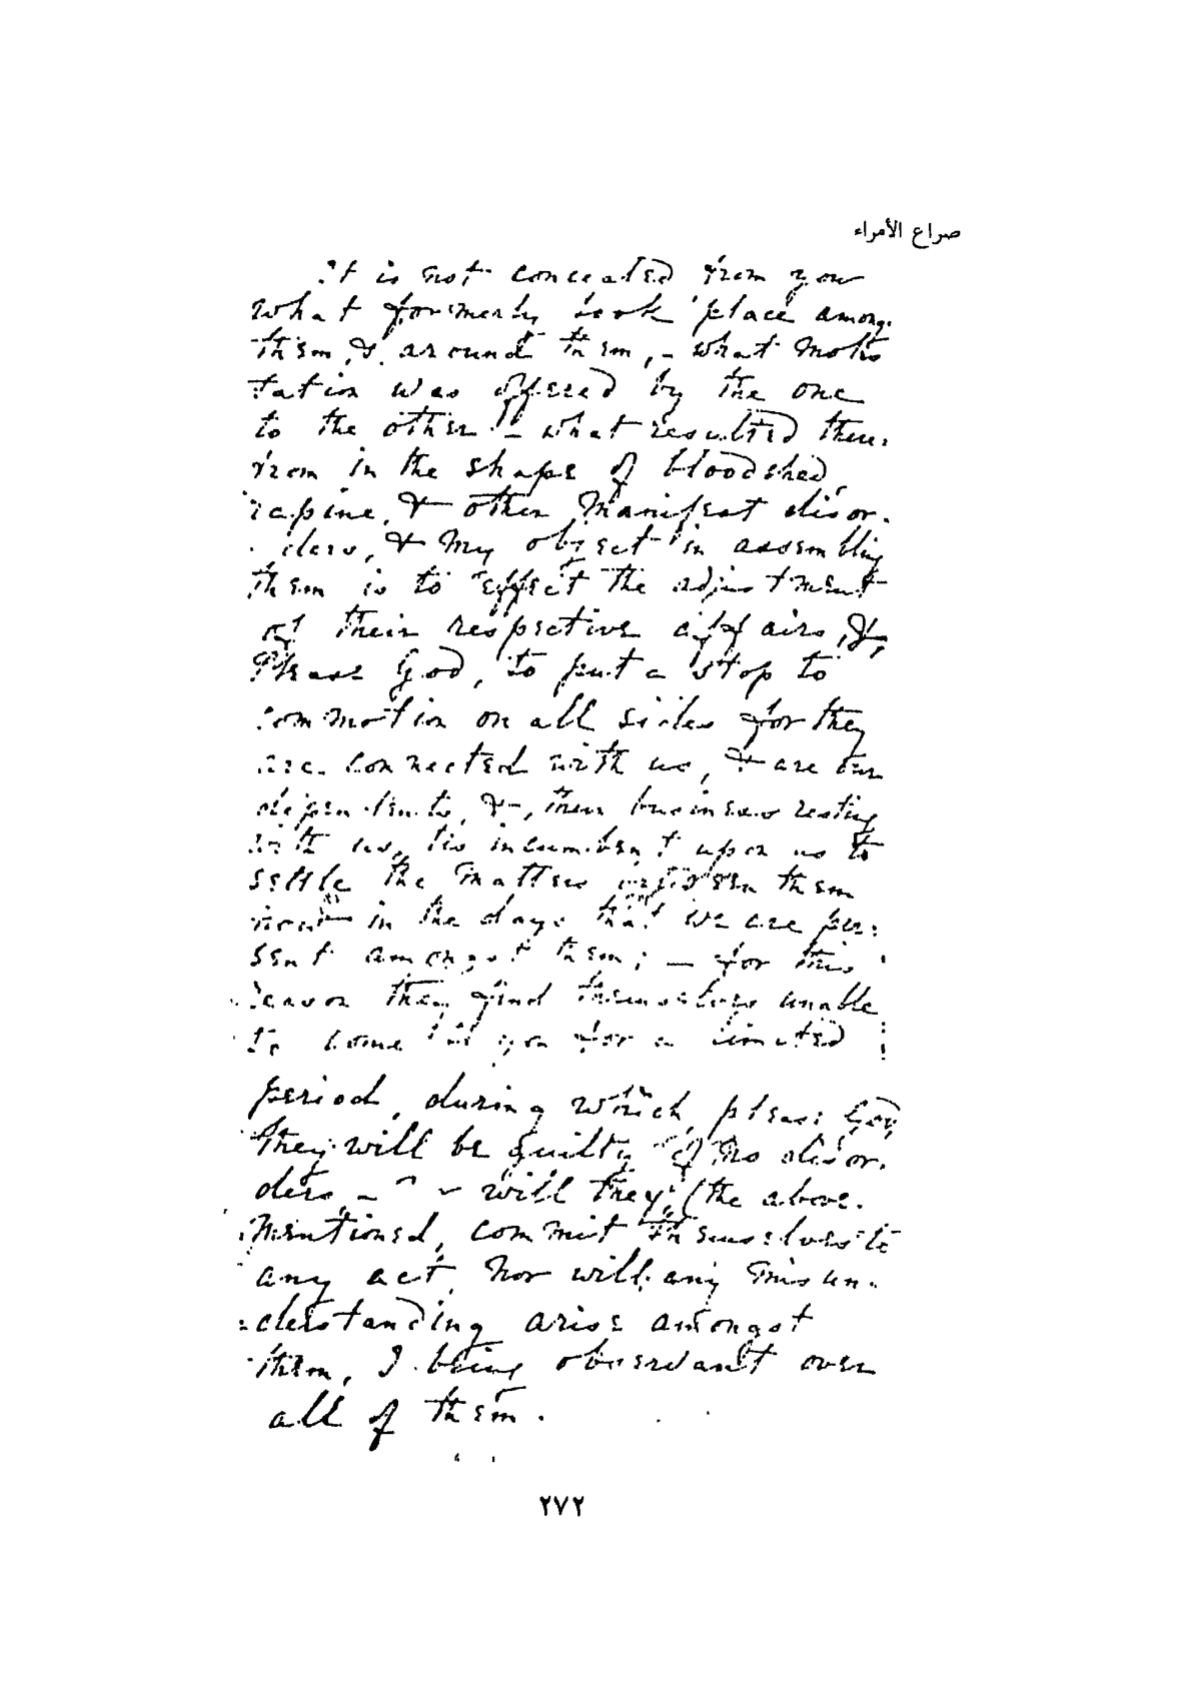 صراع الأمراء
It is not concealed from you
what formerly took place among
them, & around them, - what moles
tation was offered by the one
to the other - what resulted there
from in the shape of bloodshed,
rapine, & other manifest disor.
ders, & my object in assembling
them is to effect the adjustment
of their respective affairs, &,
Please God, to put a stop to
commotion on all sides for they
are connected with us, & are our
dependents, &, their business resting
with us, tis incumbent upon us to
settle the matters between them
in the days that we are pre:
sent amongst them; - for this
reason they find themselves unable
to come to you for a limited
period, during which, please God,
they will be guilty of no disor.
ders - will they, (the above.
mentioned, commit themselves to
any act, nor will any misun.
:derstanding arise amongst
them, I being observant over
all of them.
٢٧٢